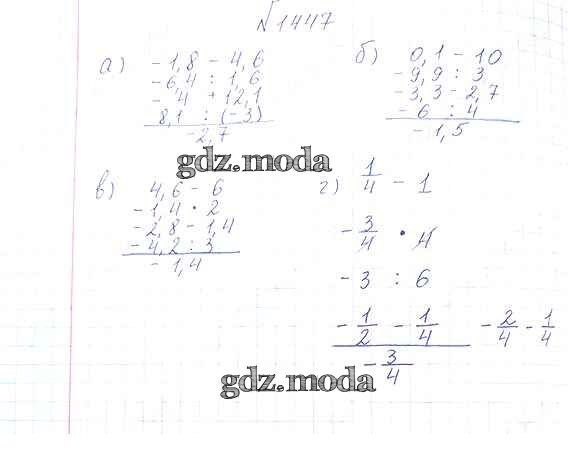 №1447
а) -1,8 - 4,6
-6,4 : 1,6
- 4 + 12,1
8,1 : (-3)
-2,7
б) 0,1 - 10
-9,9 : 3
-3,3 - 2,7
-6 : 4
-1,5
gdz.moda
в) 4,6 - 6
-1,4 • 2
-2,8 - 1,4
-4,2 : 3
-1,4
г) 1/4 - 1
-3/4 • 4
-3 : 6
-1/2 - 1/4 -2/4 - 1/4
-3/4
gdz.moda